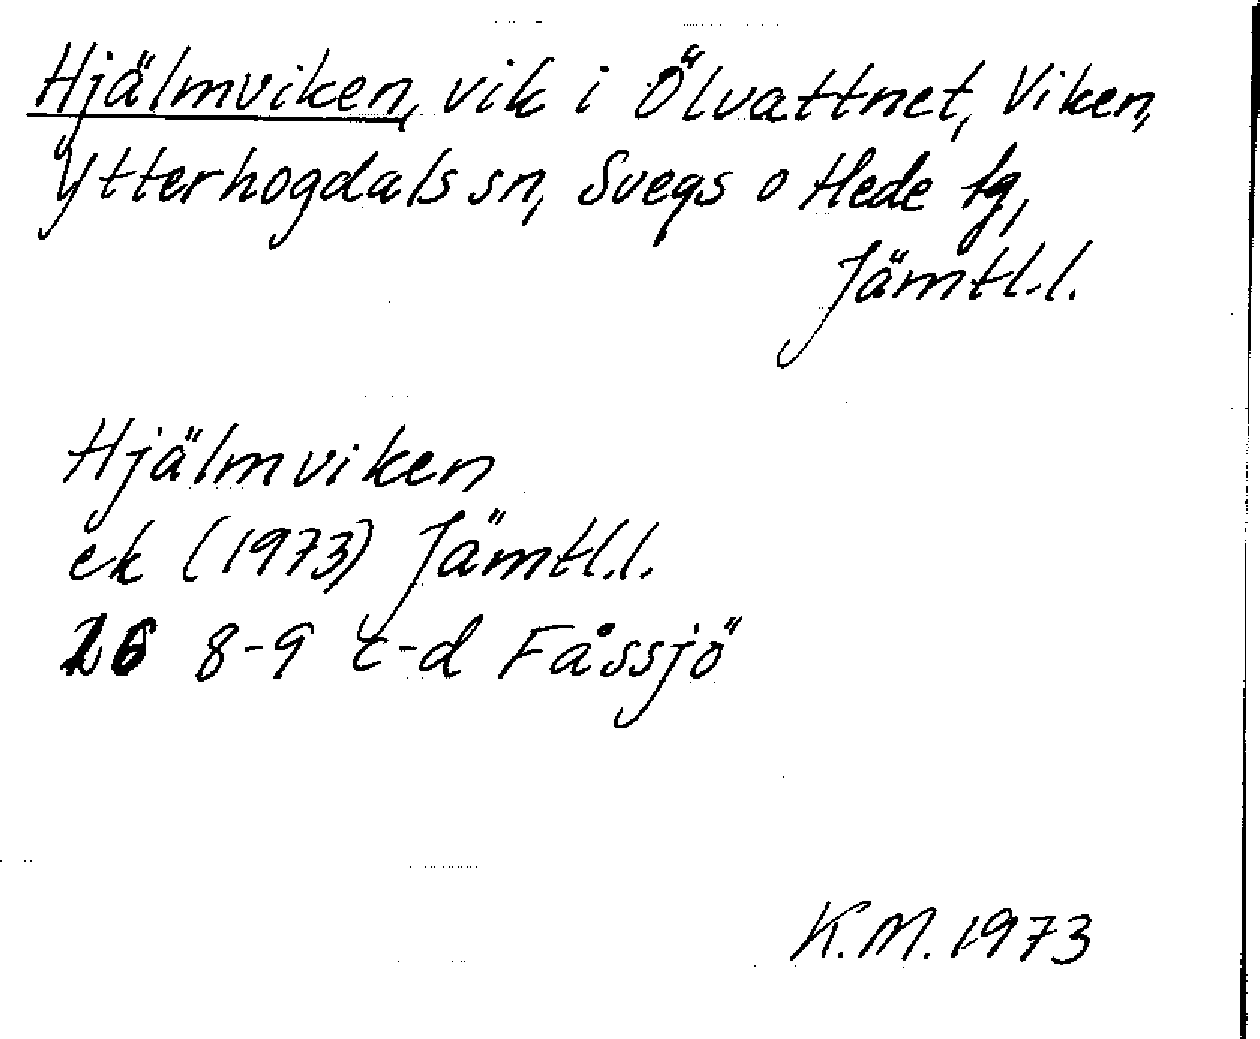 Hjälmviken, vik i Ölvattnet, Viken,
Ytterhogdals sn, Svegs o Hede tg,
Jämtl.l.
Hjälmviken
ek (1973) Jämtl.l.
16 8-9 c-d Fåssjö
K.M. 1973